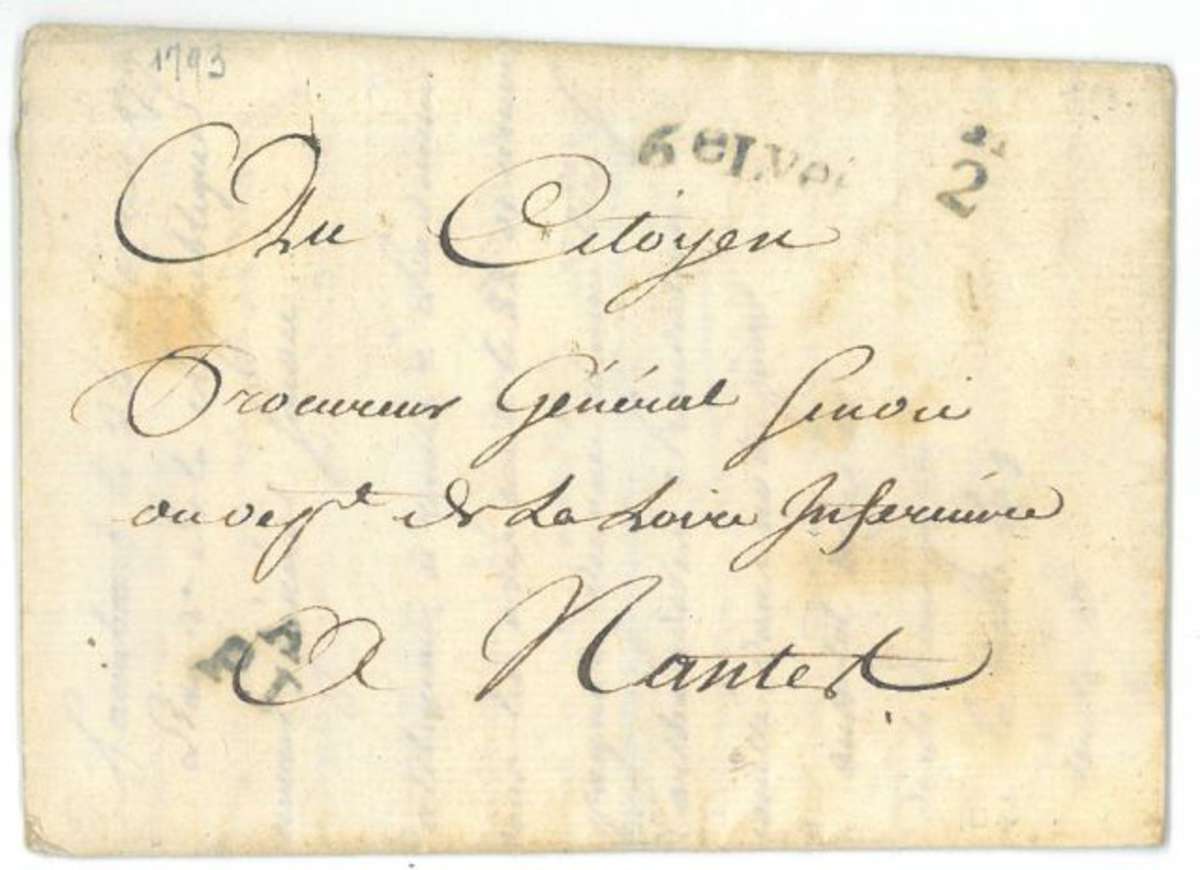 1793
6eLve
2
Au Citoyen
Procureur Général Sindic
du dept de La Loire Inferieure
A Nantes